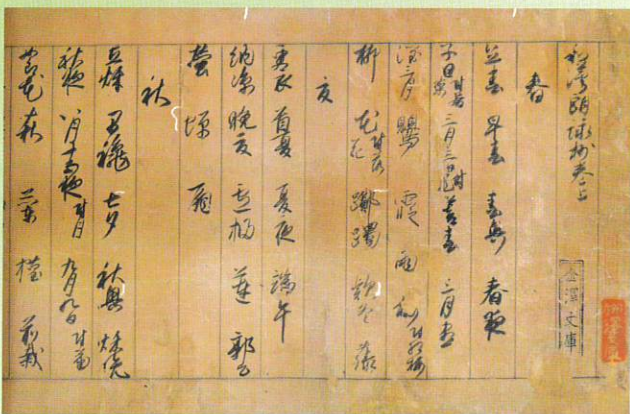 和漢朗詠抄巻上
春
立春 早春 春興 春夜
子日付若菜 三月三日付桃 暮春 三月盡
閏月 鶯 霞 雨 梅付紅梅
柳 花付落花 躑躅 款冬 藤
夏
更衣 首夏 夏夜 端午
納涼 晩夏 橘 蓮 郭公
螢 蟬 扇
秋
立秋 早秋 七夕 秋興 秋晩
秋夜 八月十五夜付月 九月九日付菊
萩 蘭 槿 前栽
金澤文庫